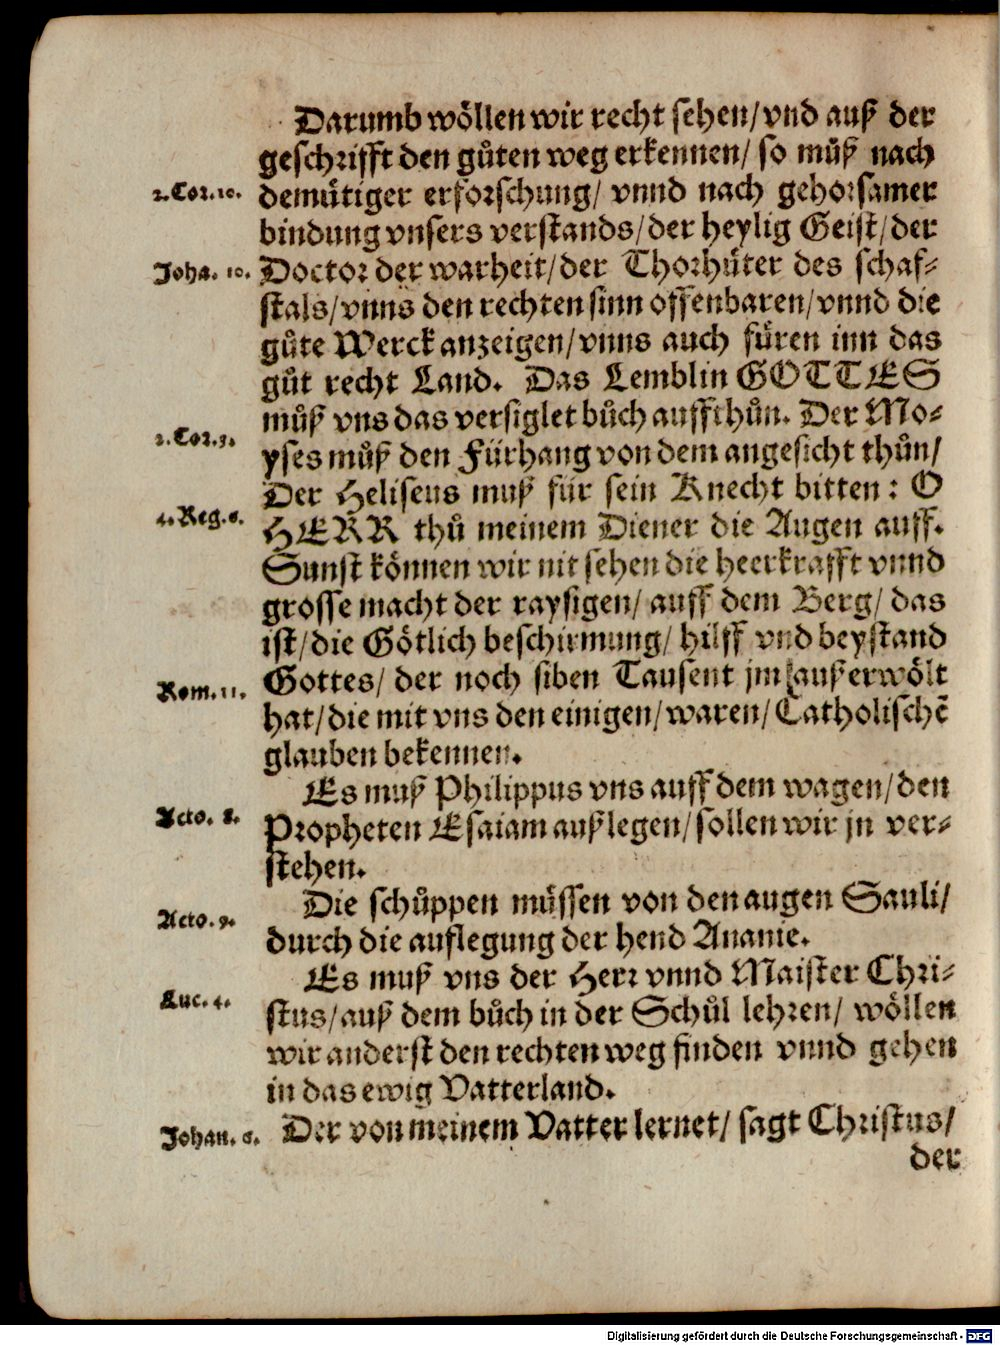 Darumb wöllen wir recht sehen/ vnd auß der
geschrifft den gůten weg erkennen/ so můß nach
2. Cor. 10. demütiger erforschung/ vnnd nach gehorsamer
bindung vnsers verstands/ der heylig Geist/ der
Joha. 10. Doctor der warheit/ der Thorhüter des schaf-
stals/ vnns den rechten sinn offenbaren/ vnnd die
gůte Werck anzeigen/ vnns auch füren inn das
gůt recht Land. Das Lemblin GOTTES
můß vns das versiglet bůch auffthůn. Der Mo-
2. Cor. 3. yses můß den Fürhang von dem angesicht thůn/
Der Heliseus muß für sein Knecht bitten: O
4. Reg. 6. HERR thů meinem Diener die Augen auff.
Sunst können wir nit sehen die heerkrafft vnnd
grosse macht der raysigen/ auff dem Berg/ das
ist/ die Götlich beschirmung/ hilff vnd beystand
Rom. 11. Gottes/ der noch siben Tausent jm außerwölt
hat/ die mit vns den einigen/ waren/ Catholischẽ
glauben bekennen.
Es muß Philippus vns auff dem wagen/ den
Acto. 8. Propheten Esaiam außlegen/ sollen wir jn ver-
stehen.
Die schůppen müssen von den augen Sauli/
Acto. 9. durch die auflegung der hend Ananie.
Es muß vns der Herr vnnd Maister Chri-
Luc. 4. stus/ auß dem bůch in der Schůl lehren/ wöllen
wir anderst den rechten weg finden vnnd gehen
in das ewig Vatterland.
Johan. 6. Der von meinem Vatter lernet/ sagt Christus/
der
Digitalisierung gefördert durch die Deutsche Forschungsgemeinschaft - DFG